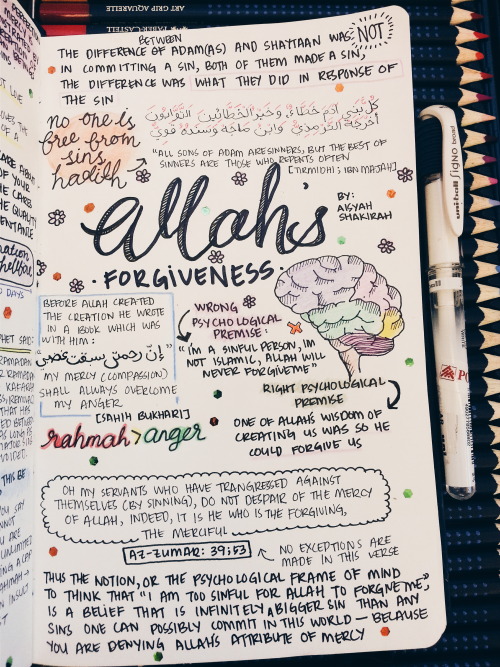 THE DIFFERENCE BETWEEN OF ADAM(AS) AND SHAYTAAN WAS NOT
IN COMMITTING A SIN, BOTH OF THEM MADE A SIN,
THE DIFFERENCE WAS WHAT THEY DID IN RESPONSE OF
THE SIN
no one is
free from
sins
hadith
"ALL SONS OF ADAM ARE SINNERS, BUT THE BEST OF
SINNERS ARE THOSE WHO REPENTS OFTEN
[TIRMIDHI; IBN MAJAH]
Allah's
BY:
AISYAH
SHAKIRAH
·FORGIVENESS·
BEFORE ALLAH CREATED
THE CREATION HE WROTE
IN A BOOK WHICH WAS
WITH HIM:
MY MERCY (COMPASSION)
SHALL ALWAYS OVERCOME
MY ANGER
[SAHIH BUKHARI]
rahmah>anger
WRONG
PSYCHOLOGICAL
PREMISE:
"I'M A SINFUL PERSON, IM
NOT ISLAMIC, ALLAH WILL
NEVER FORGIVEME"
RIGHT PSYCHOLOGICAL
PREMISE
ONE OF ALLAH'S WISDOM OF
CREATING US WAS SO HE
COULD FORGIVE US
OH MY SERVANTS WHO HAVE TRANGRESSED AGAINST
THEMSELVES (BY SINNING), DO NOT DESPAIR OF THE MERCY
OF ALLAH, INDEED, IT IS HE WHO IS THE FORGIVING,
THE MERCIFUL
AZ-ZUMAR: 39:53
NO EXCEPTIONS ARE
MADE IN THIS VERSE
THUS THE NOTION, OR THE PSYCHOLOGICAL FRAME OF MIND
TO THINK THAT "I AM TOO SINFUL FOR ALLAH TO FORGIVEME,"
IS A BELIEF THAT IS INFINITELY A BIGGER SIN THAN ANY
SINS ONE CAN POSSIBLY COMMIT IN THIS WORLD — BECAUSE
YOU ARE DENYING ALLAH'S ATTRIBUTE OF MERCY
uni-ball Signo broad
ART GRIP AQUARELLE